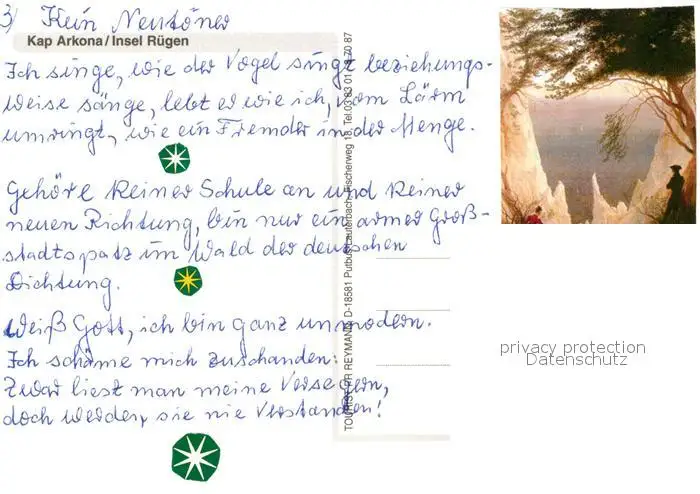 3) Kein Neutöner
Kap Arkona/Insel Rügen
Ich singe, wie der Vogel singt beziehungs-
weise sänge, lebt er wie ich, vom Lärm
umringt, wie ein Fremder in der Menge.
Gehöre keiner Schule an und keiner
neuen Richtung, bin nur ein armer Groß-
stadtspatz im Wald der deutschen
Dichtung.
Weiß Gott, ich bin ganz unmodern.
Ich schäme mich zuschanden:
Zwar liest man meine Verse gern,
doch werden sie nie Verstanden!
TOURIST REYMANN D-18581 Putbus Lauterbach Fischerweg 18, Tel. 70 87
privacy protection
Datenschutz